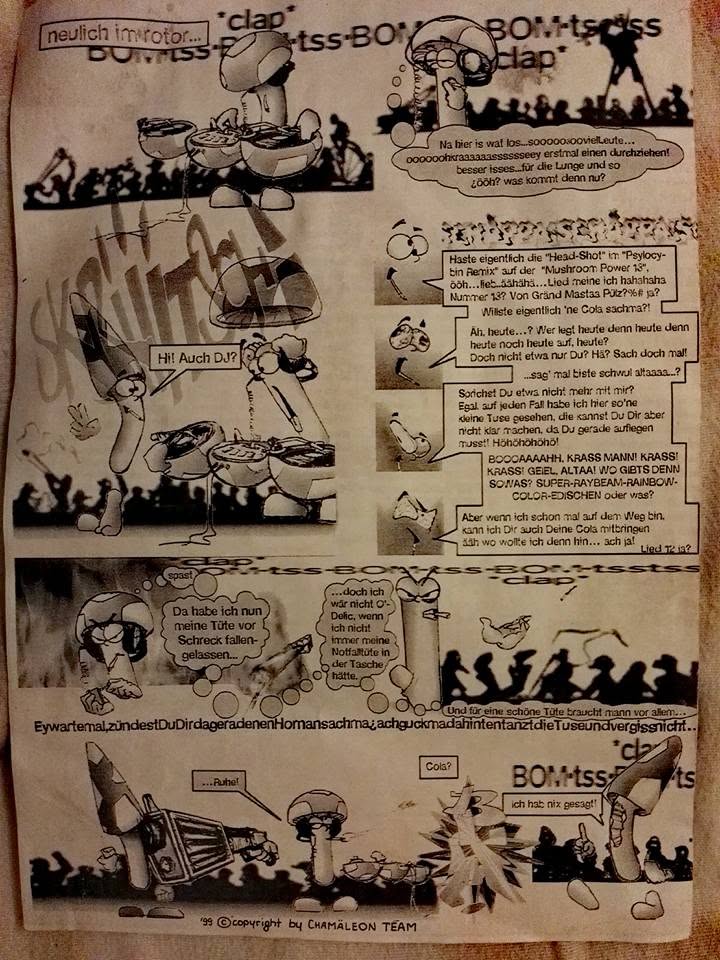 neulich im rotor...
*clap*
BOM-tss-BOM-tss-BOM-tss-BOM-tsstss
*clap*
Na hier is wat los...sooooosoovielLeute...
ooooookraaaaasssssseey erstmal einen durchziehen!
besser isses...für die Lunge und so
¿ööh? was kommt denn nu?
Hi! Auch DJ?
Haste eigentlich die "Head-Shot" im "Psylocy-
bin Remix" auf der "Mushroom Power 13",
ööh...lieb...äähähä...Lied meine ich hahahaha
Nummer 13? Von Gränd Mastaa Pülz?%# ja?
Willste eigentlich 'ne Cola sachma?!
Äh, heute...? Wer legt heute denn heute denn
heute noch heute auf, heute?
Doch nicht etwa nur Du? Hä? Sach doch mal!
...sag' mal biste schwul altaaaa...?
Sprichst Du etwa nicht mehr mit mir?
Egal, auf jeden Fall habe ich hier so'ne
kleine Tuse gesehen, die kannst Du Dir aber
nicht klar machen, da Du gerade auflegen
musst! Höhöhöhöhö!
BOOOAAAAHH, KRASS MANN! KRASS!
KRASS! GEIEL, ALTAA! WO GIBTS DENN
SOWAS? SUPER-RAYBEAM-RAINBOW-
COLOR-EDISCHEN oder was?
Aber wenn ich schon mal auf dem Weg bin,
kann ich Dir auch Deine Cola mitbringen
ääh wo wollte ich denn hin... ach ja!
Lied 12 ja?
*clap*
BOM-tss-BOM-tss-BOM-tsstss
*clap*
spast
Da habe ich nun
meine Tüte vor
Schreck fallen-
gelassen...
...doch ich
wär nicht O'-
Delic, wenn
ich nicht
immer meine
Notfalltüte in
der Tasche
hätte.
Und für eine schöne Tüte braucht mann vor allem...
Eywartemal,zündestDuDirdageradenenHornansachma¿achguckmadahintentanztdieTuseundvergissnicht...
*clap*
BOM-tss-
...Ruhe!
Cola?
ich hab nix gesagt!
'99 © copyright by CHAMÄLEON TEAM